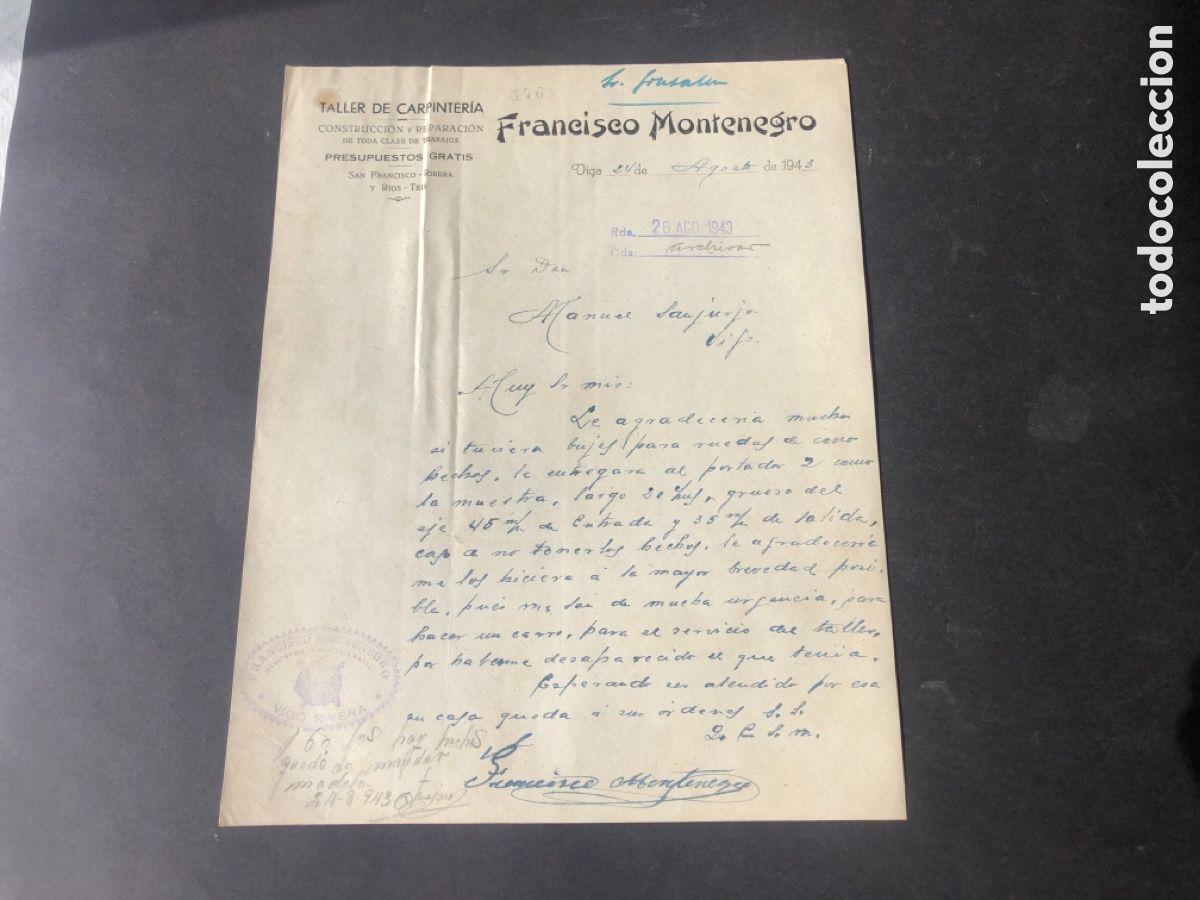 TALLER DE CARPINTERÍA
CONSTRUCCIÓN Y REPARACIÓN
DE TODA CLASE DE TRABAJOS
PRESUPUESTOS GRATIS
SAN FRANCISCO - RIBERA
Y RIOS - TEIS
Sr.
Francisco Montenegro
Vigo 24 de Agosto de 1943
Rda. 26 AGO 1943
Cda. archivar
Sr Don
Manuel Sanjurjo.
Vigo.
Muy Sr mio:
Le agradeceria mucho
si tuviera bujes para ruedas de carro
hechos, le entregara al portador 2 como
la muestra, largo 20 c/ms, grueso del
eje 45 m/m de Entrada y 35 m/m de salida,
caso de no tenerlos hechos, le agradeceria
me los hiciera á la mayor brevedad posi-
ble, pues me son de mucha urgencia, para
hacer un carro, para el servicio del taller,
por haberme desaparecido el que tenia.
Esperando ser atendido por esa
su casa queda á sus órdenes S.S.
Q. E. S. M.
Francisco Montenegro
FRANCISCO MONTENEGRO
VIGO RIVERA
no los hay hechos
quedó de mandar
modelo
24-8-943
todocoleccion